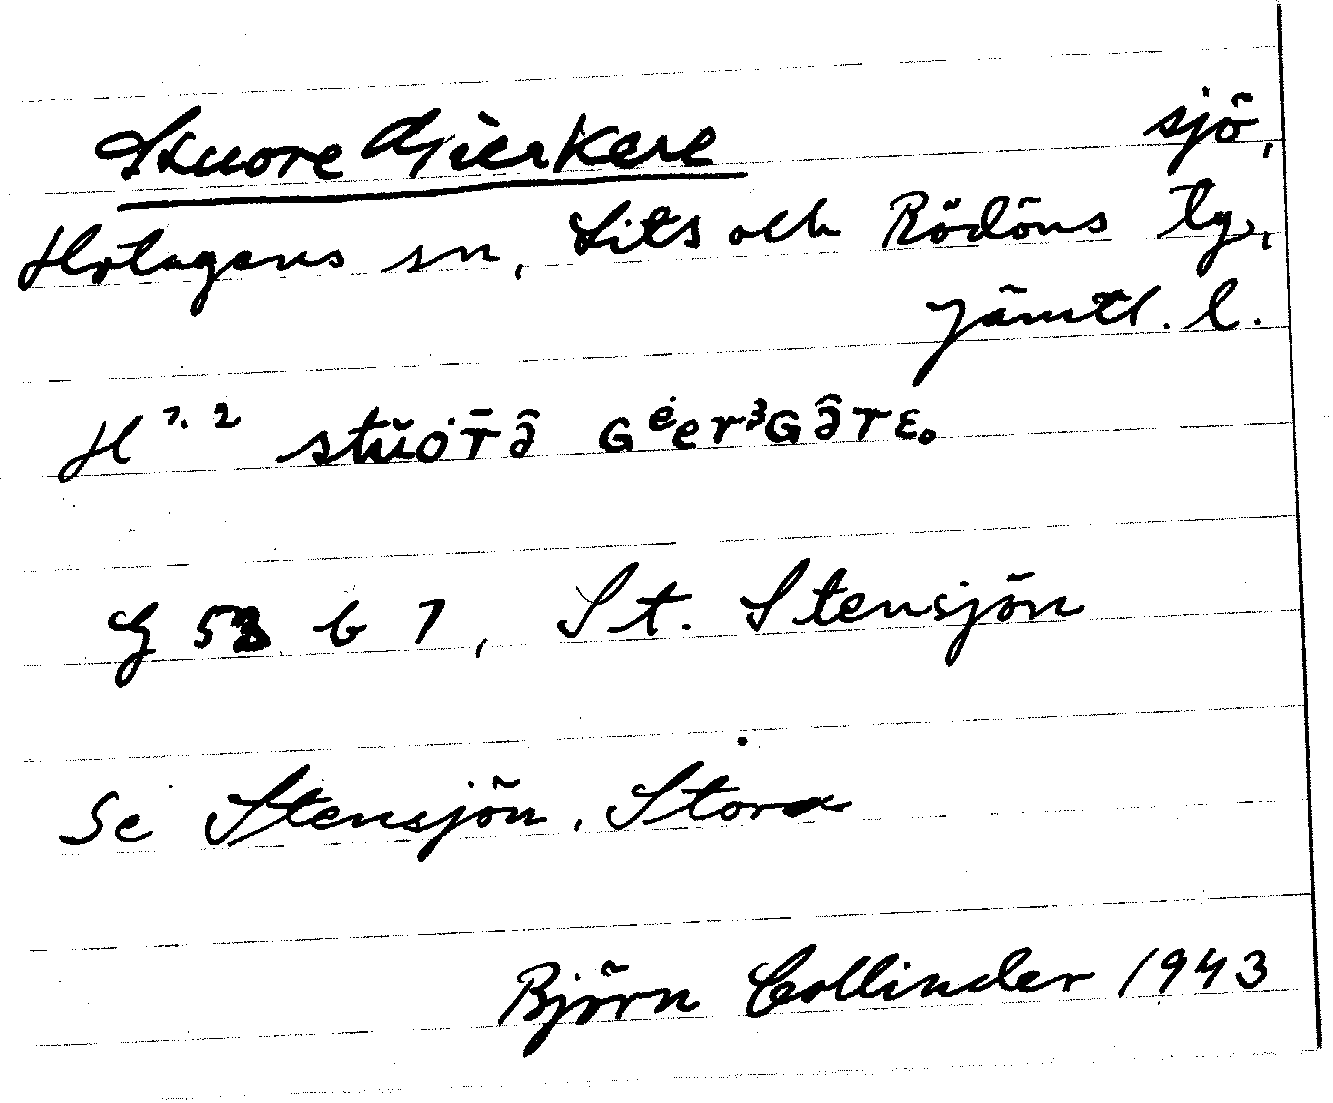 Stuore Gierkere sjö,
Hotagens sn, Lits och Rödöns tg,
Jämtl. l.
H 1. 2 stŭȯr̄ə̑ GėerʒGə̑rɛ.
G 53 b 1, St. Stensjön
Se Stensjön, Stora
Björn Collinder 1943